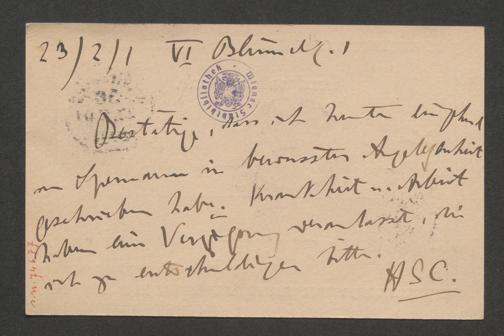 23/2/1 VI Blümelg. 1
Wiener Stadtbibliothek
Bestätige, dass ich heute
an Spemann in bewusster Angelegenheit
geschrieben habe. Krankheit u. Arbeit
haben eine Verzögerung veranlasst, die
ich zu entschuldigen bitte.
HSC.